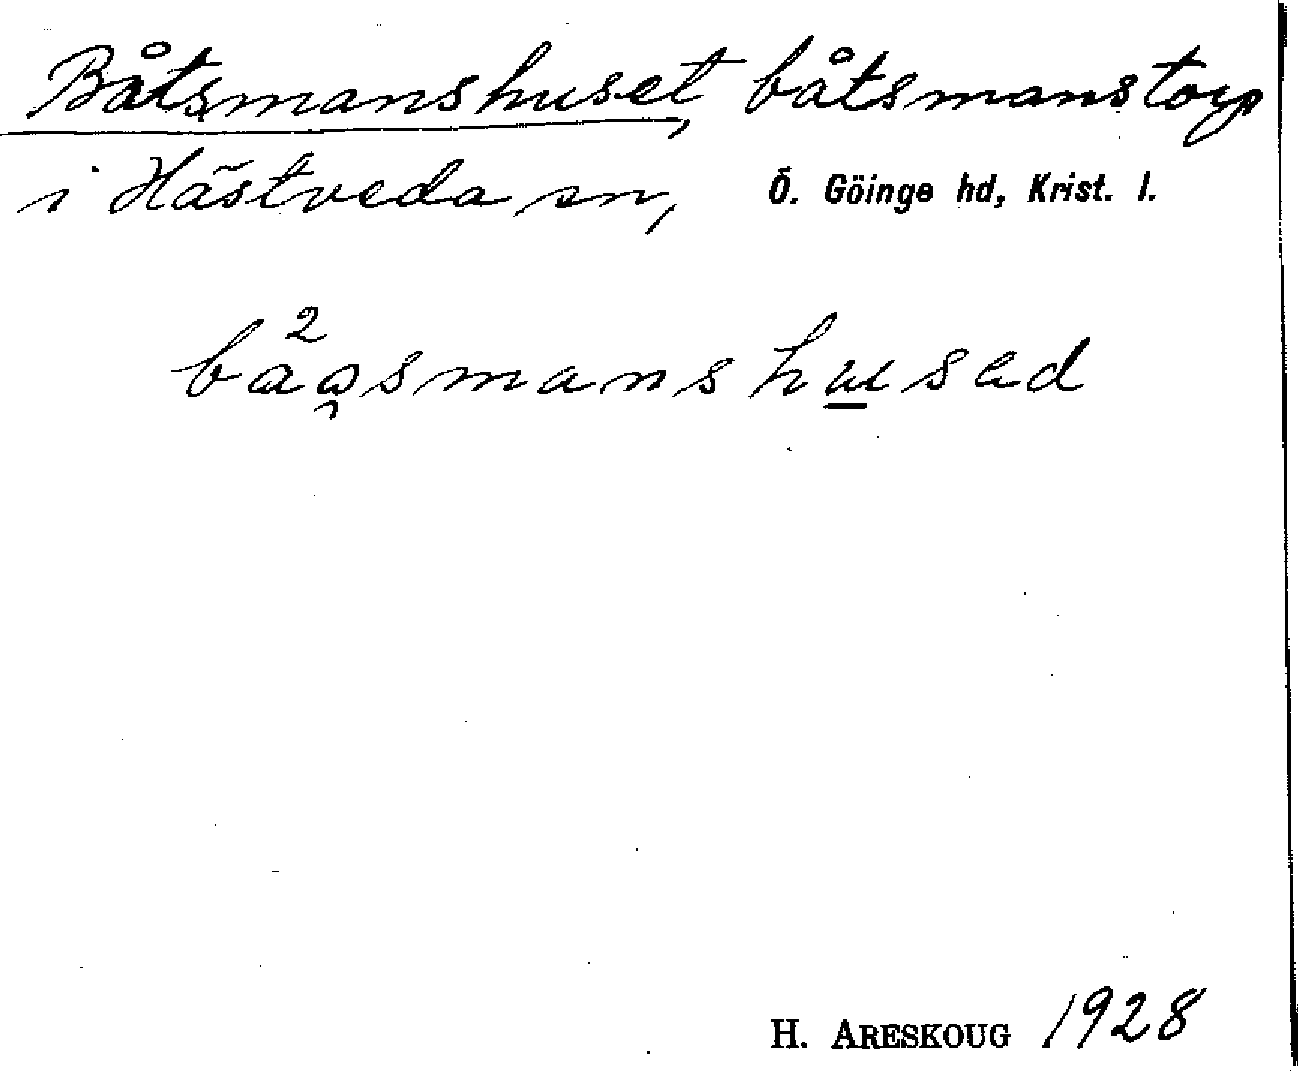 Båtsmanshuset, båtsmanstorp
i Hästveda sn, Ö. Göinge hd, Krist. l.
H. ARESKOUG 1928